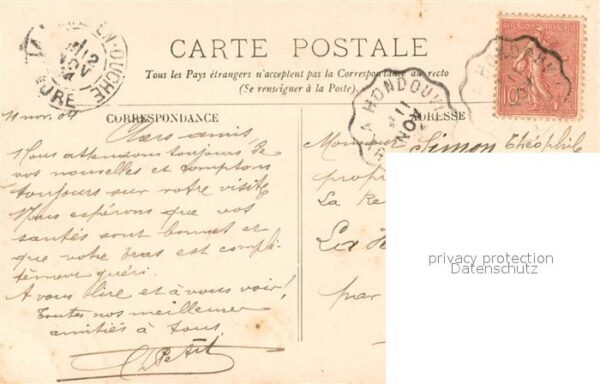 CARTE POSTALE
Tous les Pays étrangers n'acceptent pas la Correspondance au recto
(Se renseigner à la Poste).
CORRESPONDANCE
ADRESSE
11 nov. 04
Chers amis,
Nous attendons toujours de
vos nouvelles et comptons
toujours sur votre visite
Nous espérons que vos
santés sont bonnes et
que votre bras est complè-
tement guéri.
A vous lire et à vous voir!
Toutes nos meilleures
amitiés à tous.
Petit
Monsieur Simon Théophile
propr
La Re
La
par
EN-OUCHE
12
NOV
04
EURE
HONDOUVI
11
NOV
10
privacy protection
Datenschutz